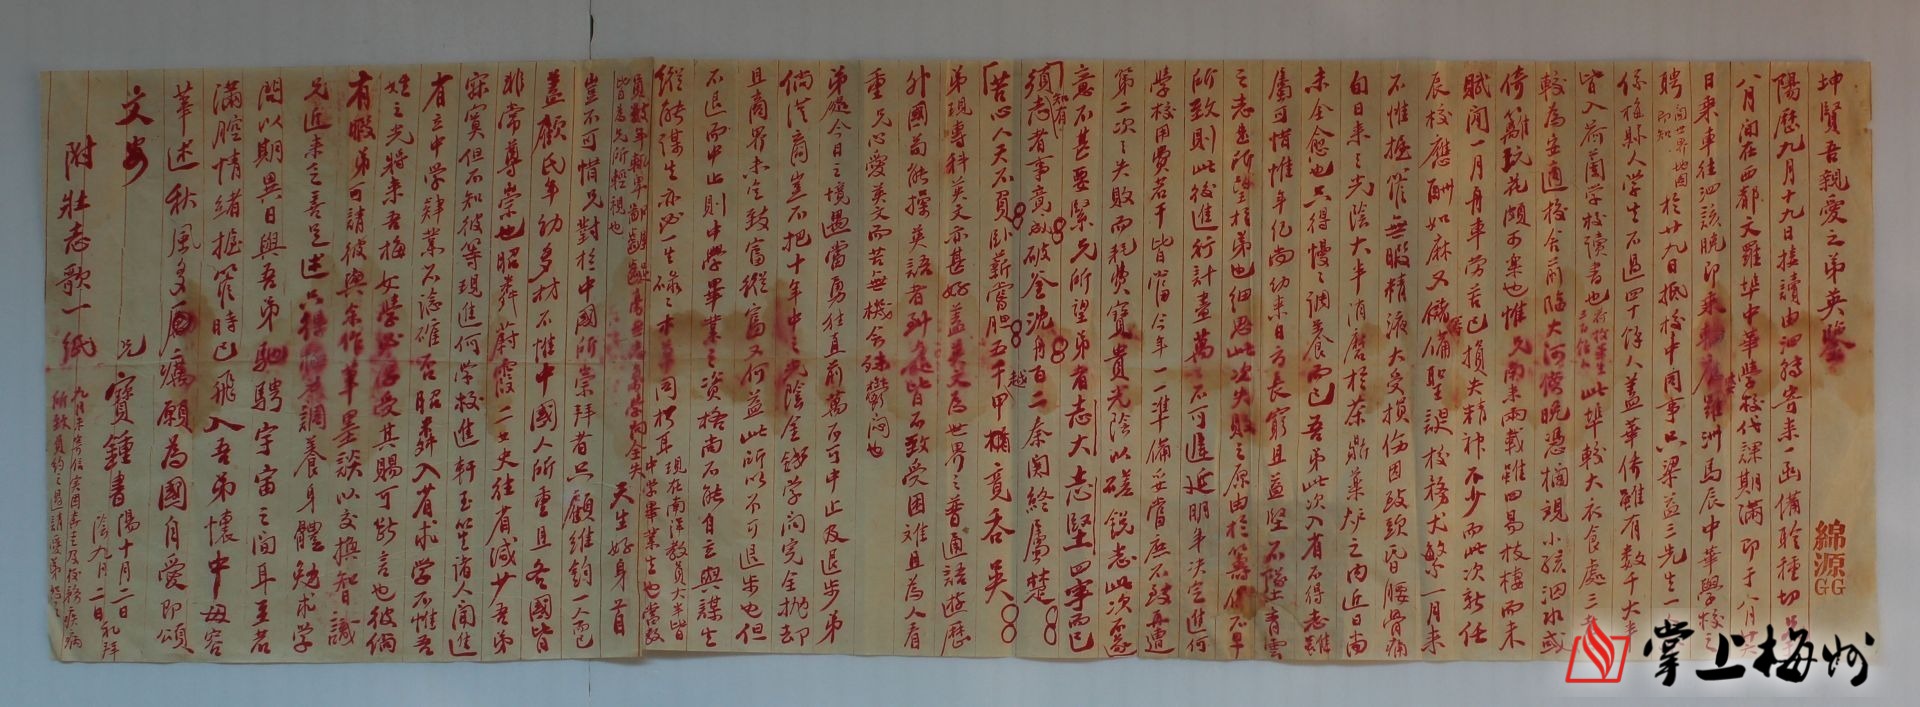 坤賢吾親愛之弟英鑒
陽歷九月十九日接讀由泗轉寄来一函備聆種切
八月間在西都文羅埠中華學校代課期滿即于八月
日乘車往泗該晚即乘 馬辰中華學校之
聘閱世界地圖即知於廿九日抵校中同事只梁益三先生一
係梅縣人學生不過四十餘人蓋華僑雖有数千大半
皆入荷蘭學校讀書也 此埠較大衣食處三者
較為安適校舍前臨大河傍晚憑欄観小孩泅水或
倚籬玩花頗可樂也惟兄南来兩載雖四易枝棲而未
賦閒一月舟車勞苦已損失精神不少而此次新任
辰校應酬如麻又儲備聖誕校務尤繁一月来
不惟握管無暇精液大受損傷因致頭昏腰骨痛
旬日来之光陰大半消磨於茶鼎藥炉之内近日尚
未全愈也只得慢之調養而已吾弟此次入省不得志雖
屬可惜惟年紀尚幼来日方長窮且益堅不墜青雲
之志是所望於弟也細思此次失敗之原由於籌備不早
所致則此後進行計畫萬不可遲延明年决定進何
學校用費若干皆當今年一一準備妥當庶不致再遭
第二次之失敗而耗費寶貴光陰以磋銳志此次不遂
意不甚要緊兄所望弟者志大志堅四事而已
須知有志者事竟成破釜沈舟百二秦関終屬楚
苦心人天不負卧薪嘗胆五千越甲 竟吞吴
弟現專科英文亦甚好蓋英文為世界之普通語遊歷
外國苟能操英語者到處皆不致受困难且為人看
重兄心愛英文而苦無機会殊鬱闷也
弟處今日之境遇當勇往直前萬不可中止及退步弟
倘從商豈不把十年中之光陰金錢学问完全抛却
且商界未必致富縱富又何益此所以不可退步也但
不退而中止則中學畢業之資格尚不能自立與謀生
縱能謀生亦必一生碌之 草同朽耳現在南洋教員大半皆中学畢業生也當教
員数年 全失皆為兄所輕視也 天生好身首
豈不可惜兄對於中國所崇拜者只顧維鈞一人而已
蓋顧氏年幼多材不惟中國人所重且各國皆
非常尊崇也昭彝蔚霞二女史往省減少吾弟
寂寞但不知彼等現進何学校進軒玉笙诸人聞進
省立中学肄業不谂確否昭彝入省求学不惟吾
姓之光將来吾梅女學必得受其賜可断言也彼倘
有暇弟可請彼與余作筆墨談以交換智識
兄近来之喜足述只 調養身體勉求学
問以期異日與吾弟馳騁宇宙之间耳至若
滿腔情緒握管時已飛入吾弟懷中毋容
筆述秋風多厲願為國自愛即頌
文安
兄 寶鍾書 陽十月二日 陰九月二日禮拜
附壮志歌一纸
九月未寄信實因 及校務疾病
所致負約之過請爱弟恕
綿源
GG GG
掌上梅州